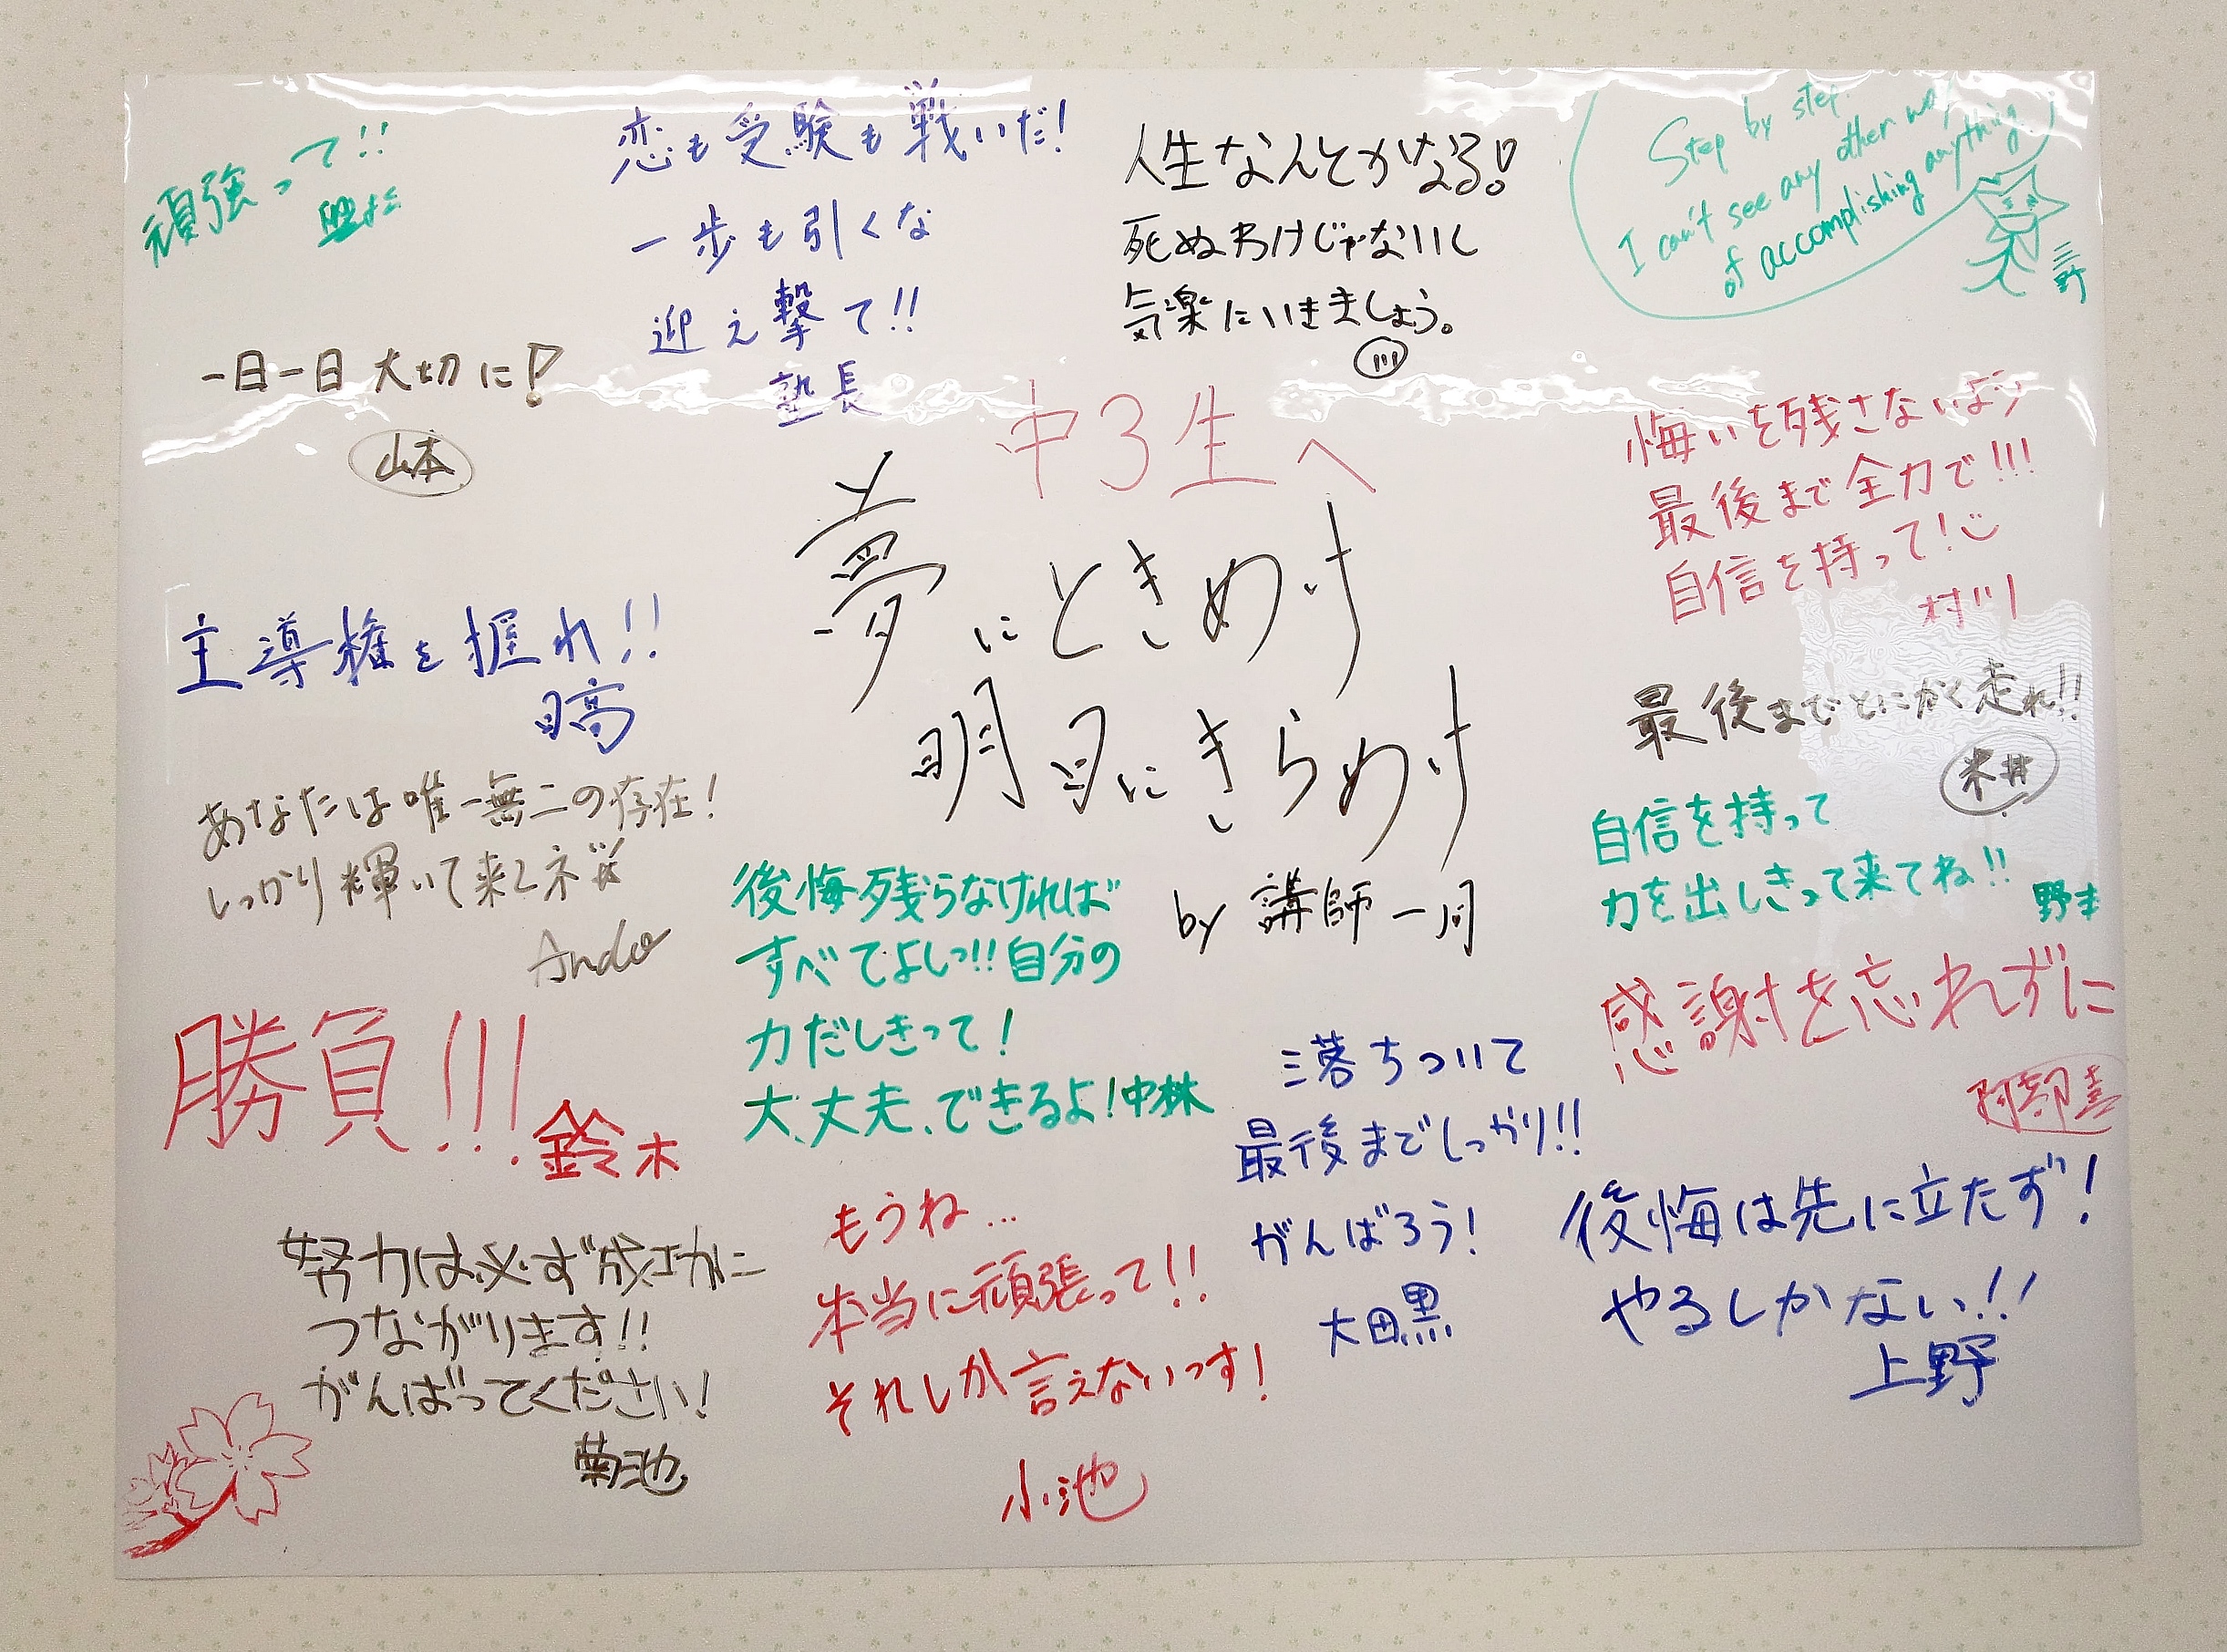 頑強って!!
恋も受験も戦いだ!
一歩も引くな
迎え撃て!!
塾長
人生なんとかなる!
死ぬわけじゃないし
気楽にいきましょう。
川
Step by step.
I can't see any other way
of accomplishing anything.
三野
一日一日 大切に!
山本
中3生へ
夢にときめけ
明日にきらめけ
by 講師一同
悔いを残さないよう
最後まで全力で!!!
自信を持って!
村川
主導権を握れ!!
日高
最後までとにかく走れ!!
米井
あなたは唯一無二の存在!
しっかり輝いて来てネ
Ando
自信を持って
力を出しきって来てね!!
野本
後悔残らなければ
すべてよしっ!!自分の
力だしきって!
大丈夫、できるよ!中林
勝負!!!
鈴木
感謝を忘れずに
阿部喜
落ちついて
最後までしっかり!!
がんばろう!
大田黒
努力は必ず成功に
つながります!!
がんばってください!
菊池
もうね…
本当に頑張って!!
それしか言えないっす!
小池
後悔は先に立たず!
やるしかない!!
上野